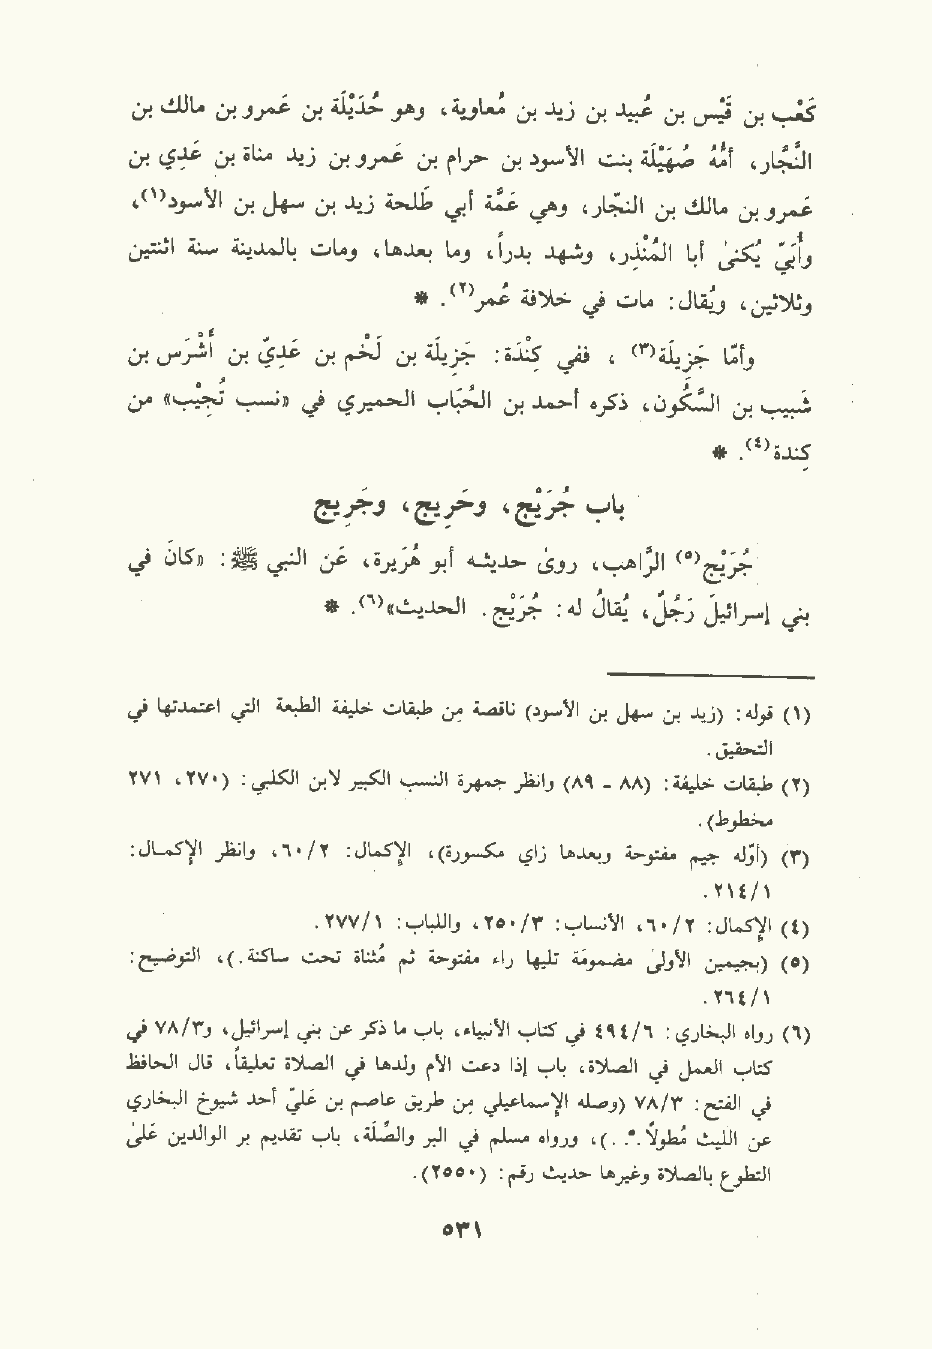 كَعْب بن قَيْس بن عُبيد بن زيد بن مُعاوية، وهو حُدَيْلَة بن عَمرو بن مالك بن
النَّجَّار، أمُّهُ صُهَيْلَة بنت الأسود بن حرام بن عَمرو بن زيد مناة بن عَدِي بن
عَمرو بن مالك بن النجّار، وهي عَمَّة أبي طَلحة زيد بن سهل بن الأسود(١)،
وأُبَيّ يُكنىٰ أبا المُنْذِر، وشهد بدراً، وما بعدها، ومات بالمدينة سنة اثنتين
وثلاثين، ويُقال: مات في خلافة عُمر(٢). *
وأمّا جَزِيلَة(٣) ، ففي كِنْدَة: جَزِيلَة بن لَخْم بن عَدِيّ بن أَشْرَس بن
شَبيب بن السَّكُون، ذكره أحمد بن الحُبَاب الحميري في «نسب تُجِيْب» من
كِندة(٤). *
باب جُرَيْج، وحَرِيج، وجَرِيج
جُرَيْج(٥) الرَّاهب، روىٰ حديثه أبو هُرَيرة، عَن النبي ﷺ: «كانَ في
بني إسرائيلَ رَجُلٌ، يُقالُ له: جُرَيْج. الحديث»(٦). *
(١) قوله: (زيد بن سهل بن الأسود) ناقصة من طبقات خليفة الطبعة التي اعتمدتها في
التحقيق.
(٢) طبقات خليفة: (٨٨ - ٨٩) وانظر جمهرة النسب الكبير لابن الكلبي: (٢٧٠، ٢٧١
مخطوط).
(٣) (أوّله جيم مفتوحة وبعدها زاي مكسورة)، الإكمال: ٦٠/٢، وانظر الإكمال:
٢١٤/١.
(٤) الإكمال: ٦٠/٢، الأنساب: ٢٥٠/٣، واللباب: ٢٧٧/١.
(٥) (بجيمين الأولىٰ مضمومة تليها راء مفتوحة ثم مُثناة تحت ساكنة.)، التوضيح:
٢٦٤/١.
(٦) رواه البخاري: ٤٩٤/٦ في كتاب الأنبياء، باب ما ذكر عن بني إسرائيل، و٧٨/٣ في
كتاب العمل في الصلاة، باب إذا دعت الأم ولدها في الصلاة تعليقاً، قال الحافظ
في الفتح: ٧٨/٣ (وصله الإسماعيلي من طريق عاصم بن عليّ أحد شيوخ البخاري
عن الليث مُطولاً.ه. .)، ورواه مسلم في البر والصِّلَة، باب تقديم بر الوالدين علىٰ
التطوع بالصلاة وغيرها حديث رقم: (٢٥٥٠).
٥٣١